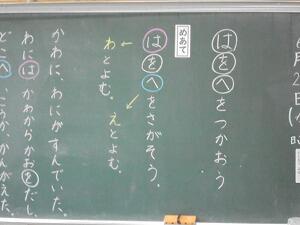 月2日(
時
はをへをつかおう
めあて
はをへをさがそう。
わとよむ。
えとよむ。
かわに、わにがすんでいた。
わにはかわからかおをだし、
どこへいこうか、かんがえた。